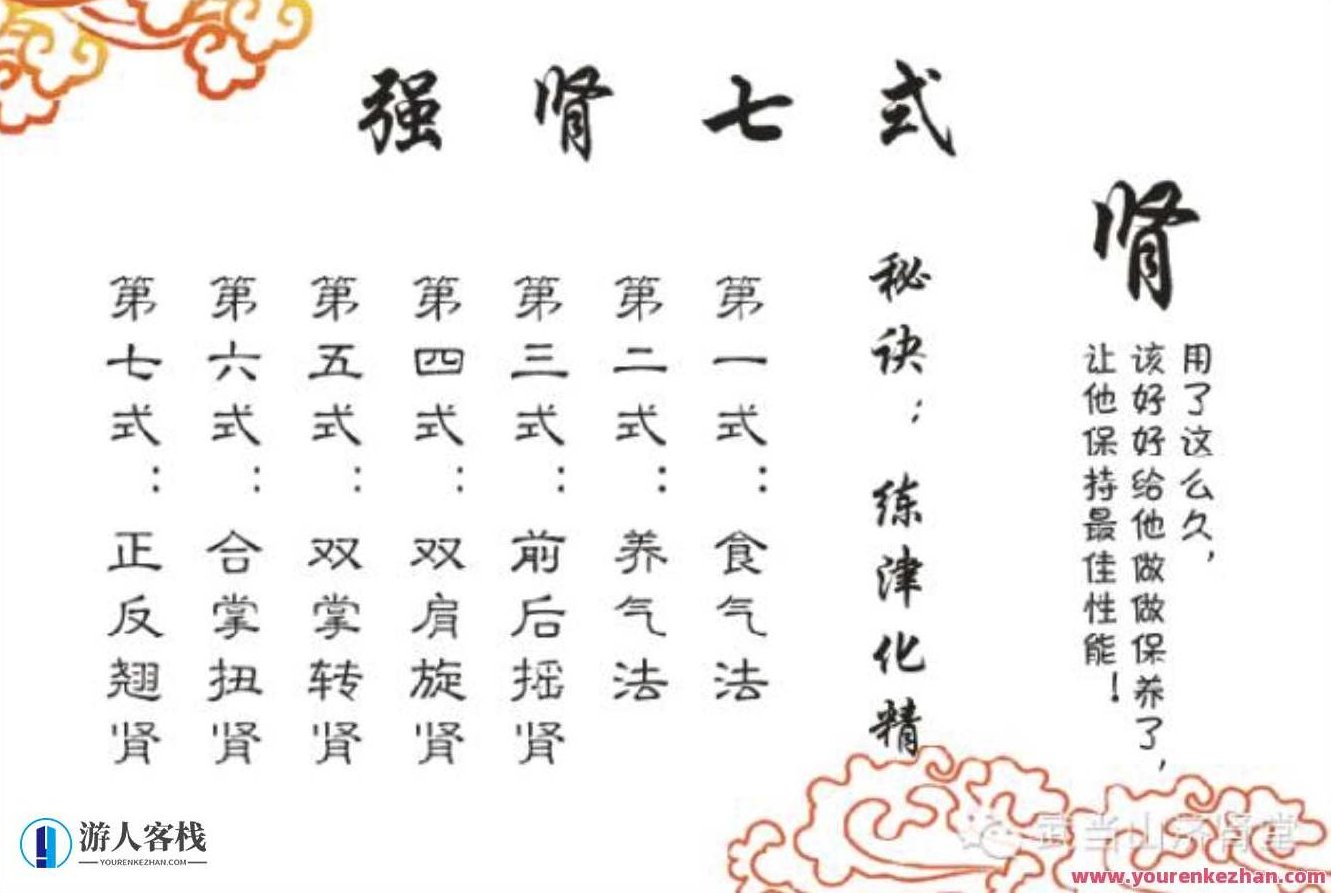 强肾七式
肾
用了这么久，
该好好给他做做保养了，
让他保持最佳性能！
秘诀：练津化精
第一式：食气法
第二式：养气法
第三式：前后摇肾
第四式：双肩旋肾
第五式：双掌转肾
第六式：合掌扭肾
第七式：正反翘肾
游人客栈
YOURENKEZHAN.COM
武当山
肾堂
www.yourenkezhan.com